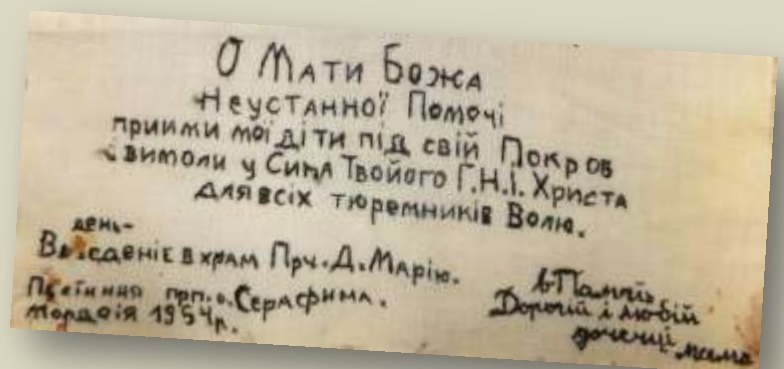 О Мати Божа
Неустанної Помочі
приими мої діти під свій Покров
і вимоли у Сина Твойого Г.Н.І. Христа
для всіх тюремників Волю.
день-
Введеніє в храм Прч. Д. Марію.
прп. о. Серафима.
Мордовія 1954 р.
в Память
Дорогій і любій
дочечці мама